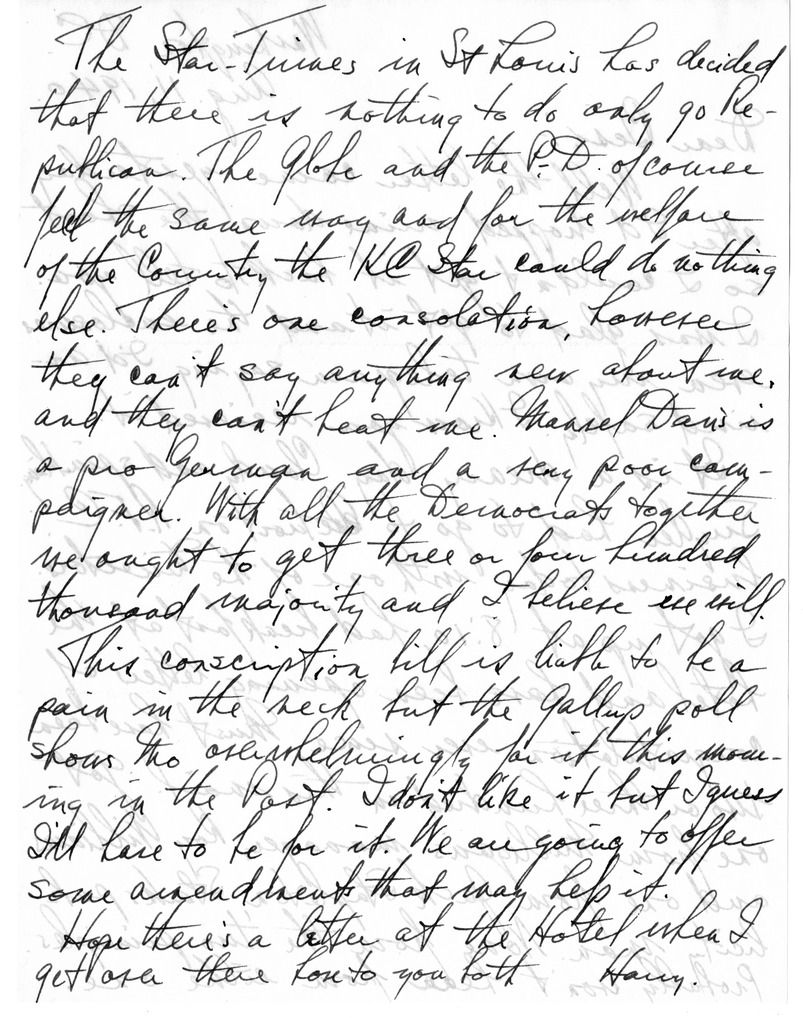 The Star-Times in St Louis has decided
that there is nothing to do only go Re-
publican. The Globe and the P.D. of course
feel the same way and for the welfare
of the Country the KC Star could do nothing
else. There's one consolation, however
they can't say anything new about me,
and they can't beat me. Manvel Davis is
a pro German and a very poor cam-
paigner. With all the Democrats together
we ought to get three or four hundred
thousand majority and I believe we will.
This conscription bill is liable to be a
pain in the neck but the Gallup poll
shows Mo overwhelmingly for it this morn-
ing in the Post. I don't like it but I guess
I'll have to be for it. We are going to offer
some amendments that may help it.
Hope there's a letter at the Hotel when I
get over there love to you both Harry.